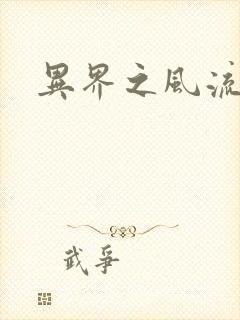 異界之風流
武爭